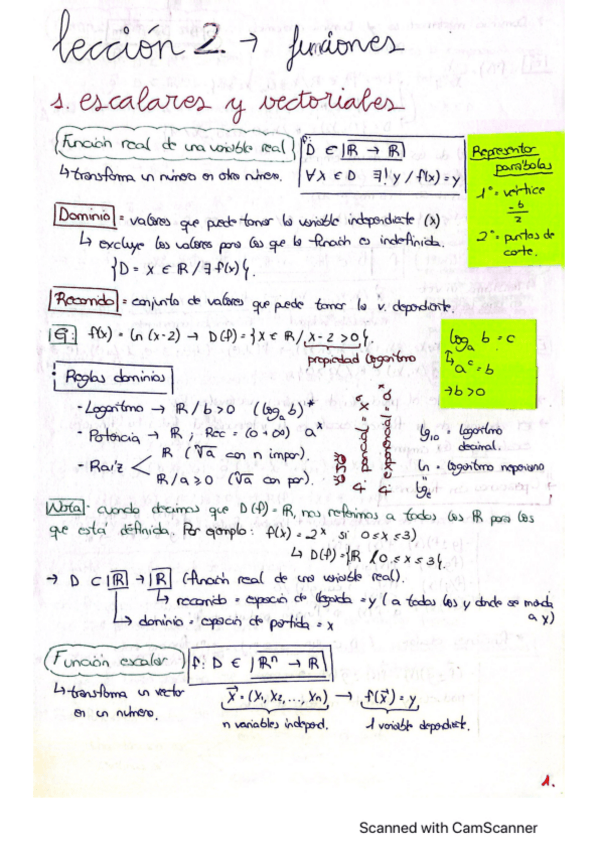 lección 2. → funciones
1. escalares y vectoriales
Función real de una variable real
f: D ⊂ |R → |R
∀ x ∈ D ∃! y / f(x) = y
↳ transforma un número en otro número.
Representar
parábolas
1º = vértice
-b
2
2º = puntos de
corte.
Dominio = valores que puede tomar la variable independiente (x)
↳ excluye los valores para los que la función es indefinida.
{D = x ∈ R / ∃ f(x)}.
Recorrido = conjunto de valores que puede tomar la v. dependiente.
Ej: f(x) = ln (x-2) → D(f) = {x ∈ R / x-2 > 0}.
propiedad logaritmo
log_a b = c
↳ a^c = b
→ b > 0
Reglas dominios
- Logaritmo → R / b > 0 (log_a b)*
- Potencia → R ; Rec = (0 + ∞) a^x
- Raíz < R (ⁿ√a con n impar).
R / a ≥ 0 (ⁿ√a con par).
log_10 = logaritmo
decimal.
ln = logaritmo neperiano
log_e
Nota - cuando decimos que D(f) = R, nos referimos a todos los R para los
que está definida. Por ejemplo: f(x) = 2x si 0 ≤ x ≤ 3)
↳ D(f) = {R / 0 ≤ x ≤ 3}.
→ D ⊂ |R → |R (función real de una variable real).
↳ recorrido = espacio de llegada = y (a todos los y donde se manda
a x)
↳ dominio = espacio de partida = x
Función escalar
f: D ∈ |R^n → R
↳ transforma un vector
en un número.
x⃗ = (x₁, x₂, ..., xₙ) → f(x⃗) = y
n variables independ.
1 variable dependient.
1.
Scanned with CamScanner